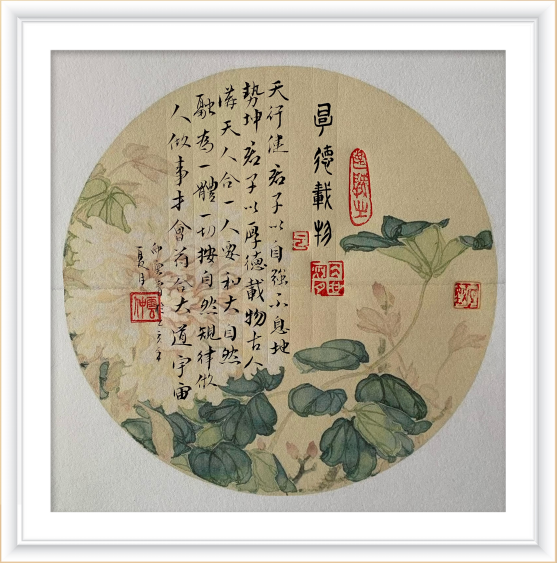 厚德載物
天行健君子以自強不息地
勢坤君子以厚德載物古人
講天人合一人要和大自然
融為一體一切按自然規律做
人做事才會符合大道宇宙
夏月